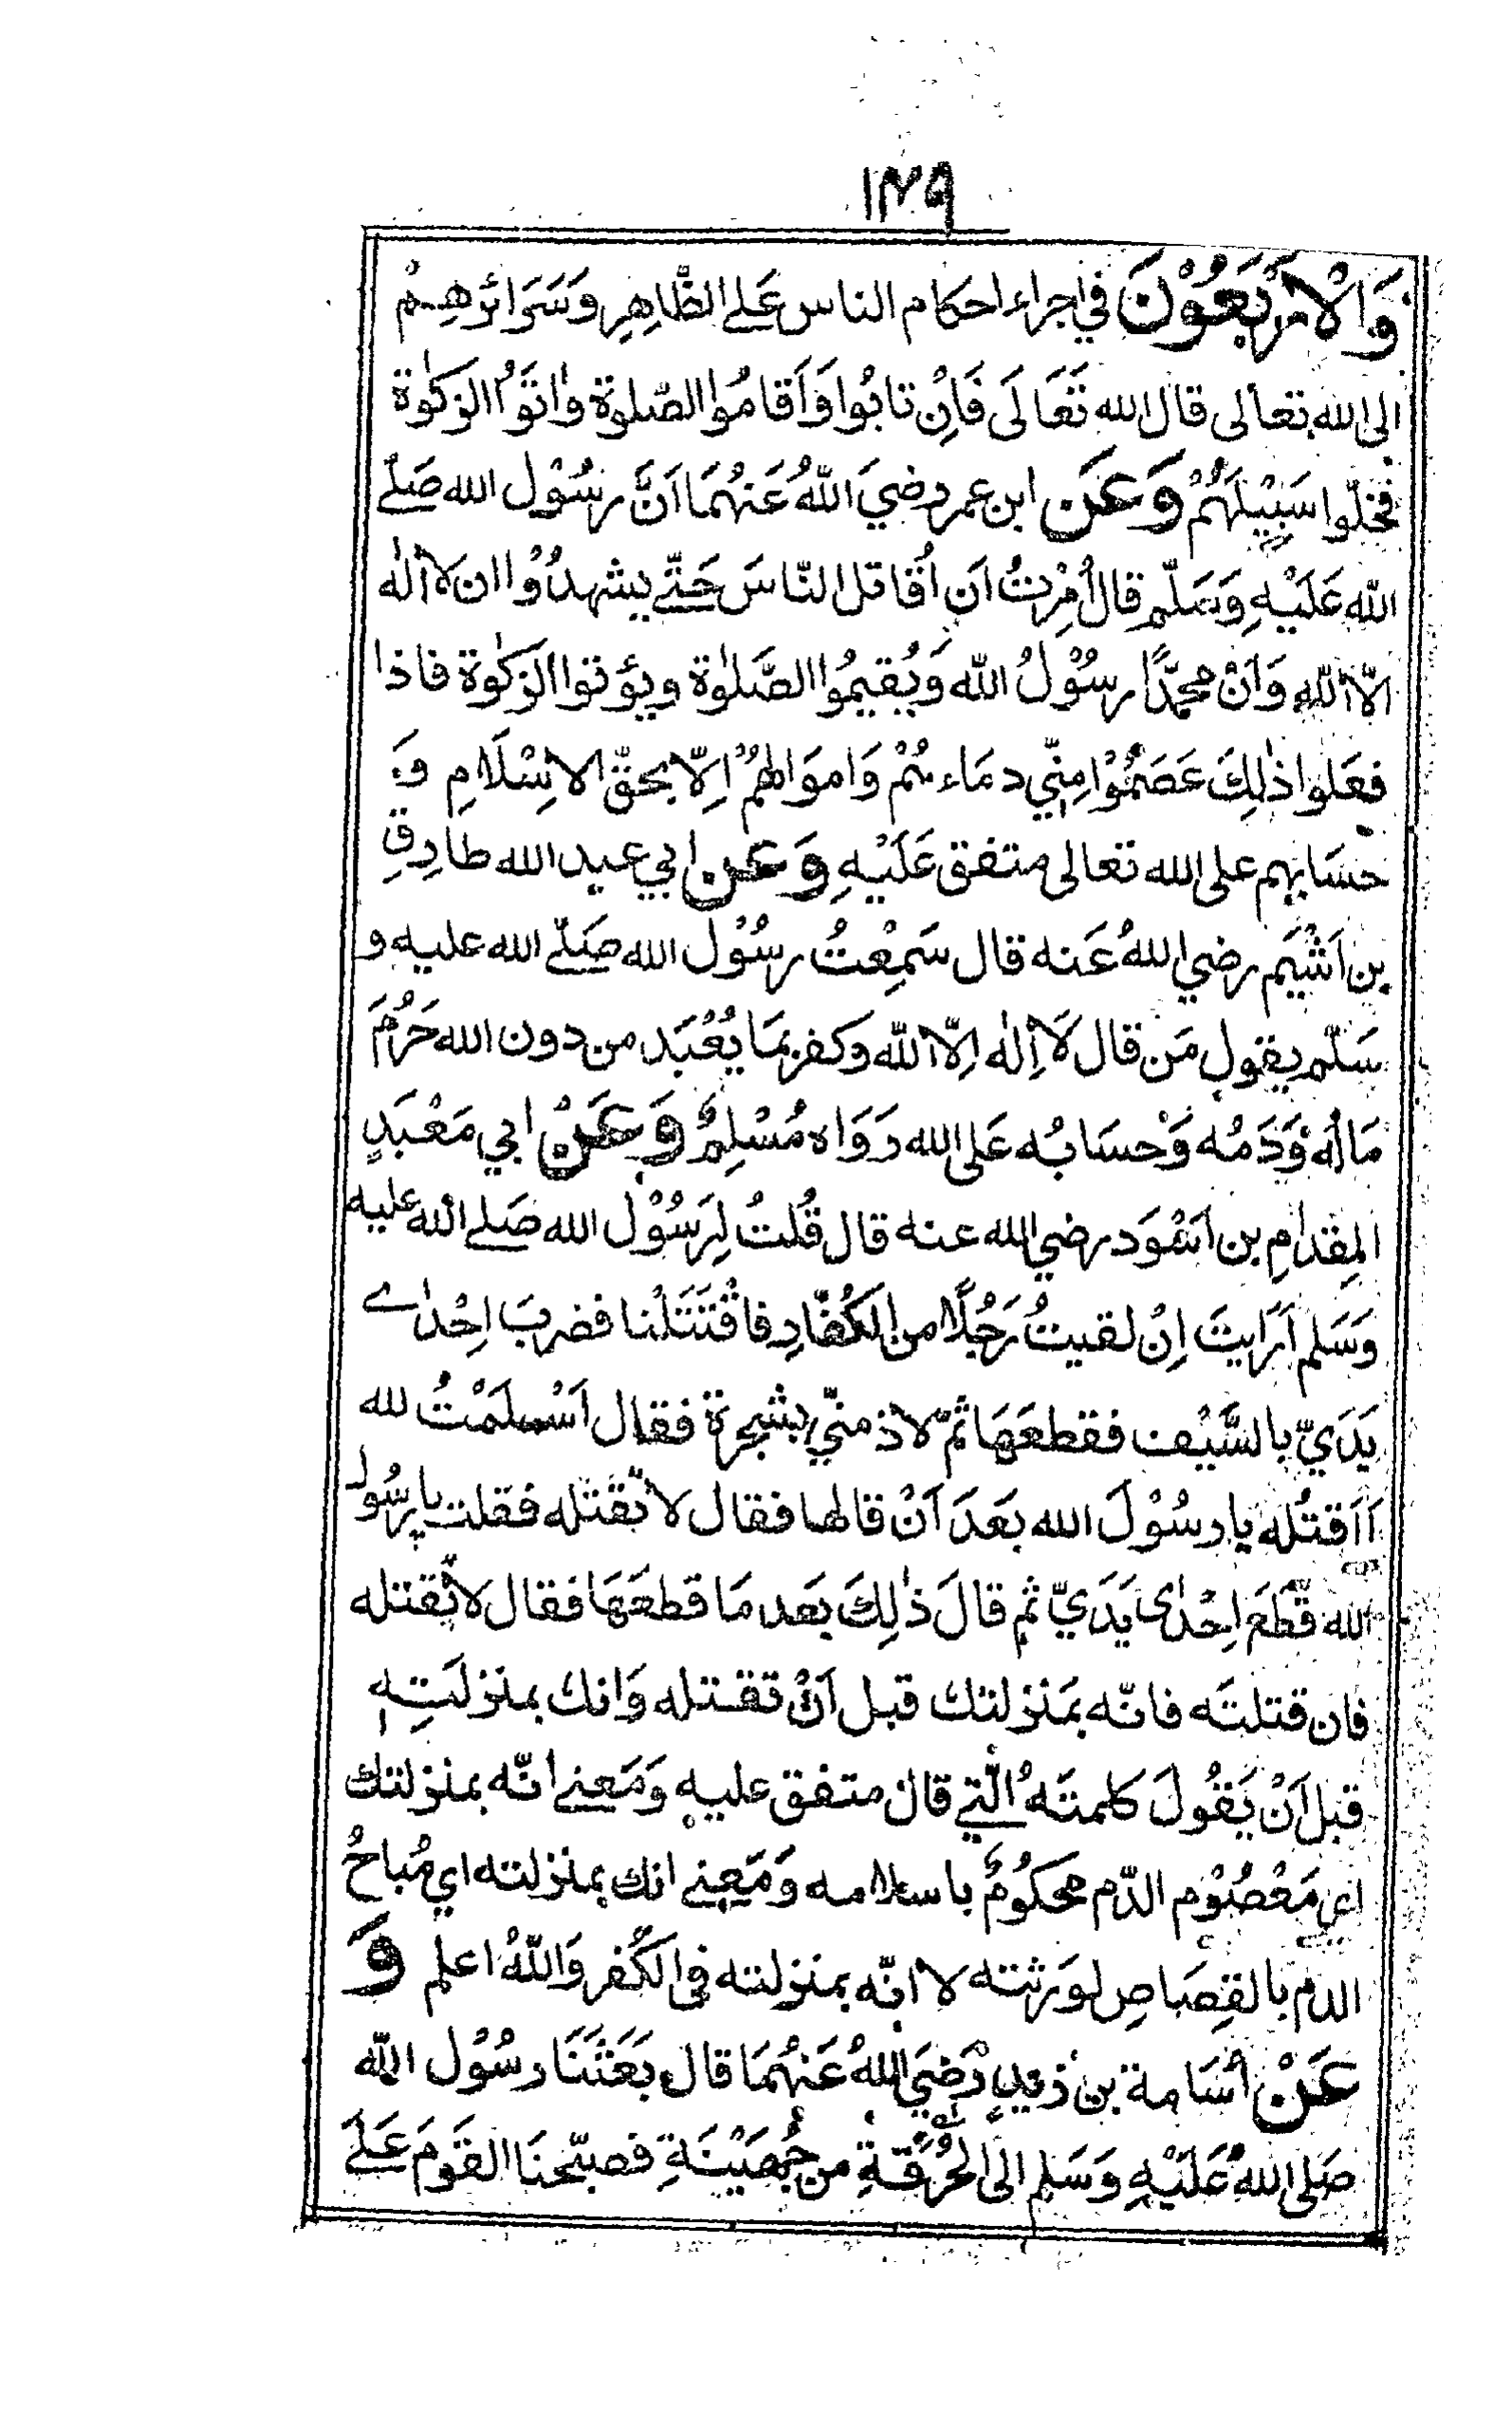 ١٢٩
وَالْاَرْبَعُوْنَ في اجراء احكام الناس عَلَى الظّاهِرِ وَسَرَائرُهِمْ
الى الله تعالى قال الله تَعَالَى فَاِنْ تابُوا وَاَقامُوا الصّلوة واٰتَوُا الزكوٰة
فخلّوا سَبِيْلَهُمْ وَعَن ابن عمر رضيَ اللّٰهُ عَنْهُمَا اَنَّ رسُوْل الله صَلّے
اللّٰه عَلَيْهِ وَسَلّم قال اُمِرْتُ اَن اُقاتل النّاسَ حَتّے يشهدُوْا ان لا اله
الّا اللّٰه وَاَنْ محمّدًا رسُوْلُ اللّٰه وَيُقيمُوا الصَّلوٰة ويؤتوا الزكوٰة فاذا
فعَلوا ذٰلِكَ عَصَمُوْا مِنّي دمَاءهُمْ وَاموَالهُمْ اِلّا بحقّ الاِسْلَامِ وَ
حسَابهم على الله تعالى متفق عَلَيْهِ وَعَن ابي عبد الله طارِقِ
بن اَشْيَم رضي اللهُ عَنه قال سَمِعْتُ رسُوْل الله صَلّے الله عليه و
سَلّم يقول مَن قال لَا اِلٰه اِلّا اللّٰه وكفر بمَا يُعْبَد من دون الله حَرُمَ
مَالُهُ وَدَمُه وَحسَابُه عَلى الله رَوَاه مُسْلِمٌ وَعَنْ ابي مَعْبَدٍ
المِقدامِ بن اَسْوَد رضي الله عنه قال قُلتُ لِرَسُوْل الله صَلے اللّٰه عليه
وَسَلم اَرَايتَ اِنْ لقيتُ رَجُلًا من الكُفّارِ فاقْتَتَلْنا فضربَ اِحْدٰے
يَدَيّ بالسَّيْف فقطعَهَا ثمّ لاذ منّي بشجرة فقال اَسْلَمْتُ لله
اَاَقتُله يا رسُوْلَ الله بَعَدَ اَنْ قالها فقال لا تقتله فقلت يا رسُول
الله قطَعَ اِحْدٰى يَدَيّ ثم قالَ ذٰلِكَ بَعَد مَا قطعَهَا فقال لا تقتله
فان قتلتَه فانّه بمَنزلتك قبل اَنْ تقتله وَانك بمنزلَتِهٖ
قبل اَنْ يَقُولَ كلمتَهُ الّتي قال متفق عليه وَمَعنے انّه بمنزلتك
اي مَعْصُوْم الدّم محكوُمٌ باسلامه وَمَعنے انك بمنزلته اي مُباحُ
الدم بالقِصَاصِ لوَرثته لا انّه بمنزلته في الكُفر وَاللّٰهُ اعلم وَ
عَنْ اُسَامة بن زيدٍ رَضيَ اللهُ عَنْهُمَا قال بَعَثَنَا رسُوْل اللّٰه
صَلى اللهُ عَلَيْهِ وَسَلم الى الحُرَقةِ من جُهَيْنَةِ فصبّحنَا القَومَ عَلے